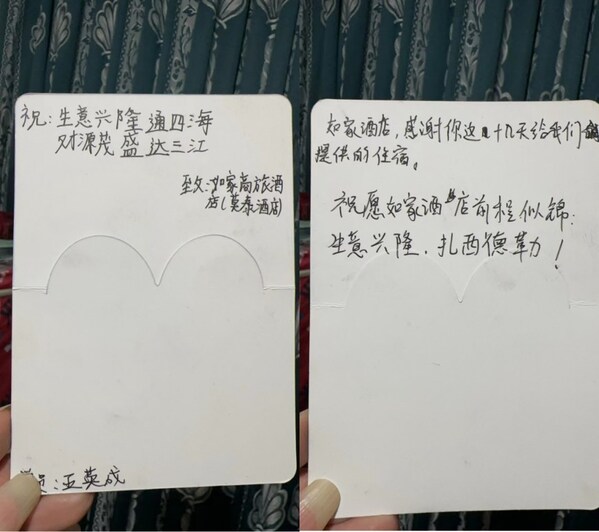 祝:生意兴隆通四海
财源茂盛达三江
至致:如家商旅酒
店(莫泰酒店)
学员:王英成
如家酒店,感谢你这十几天给我们
提供的住宿。
祝愿如家酒店前程似锦:
生意兴隆,扎西德勒!